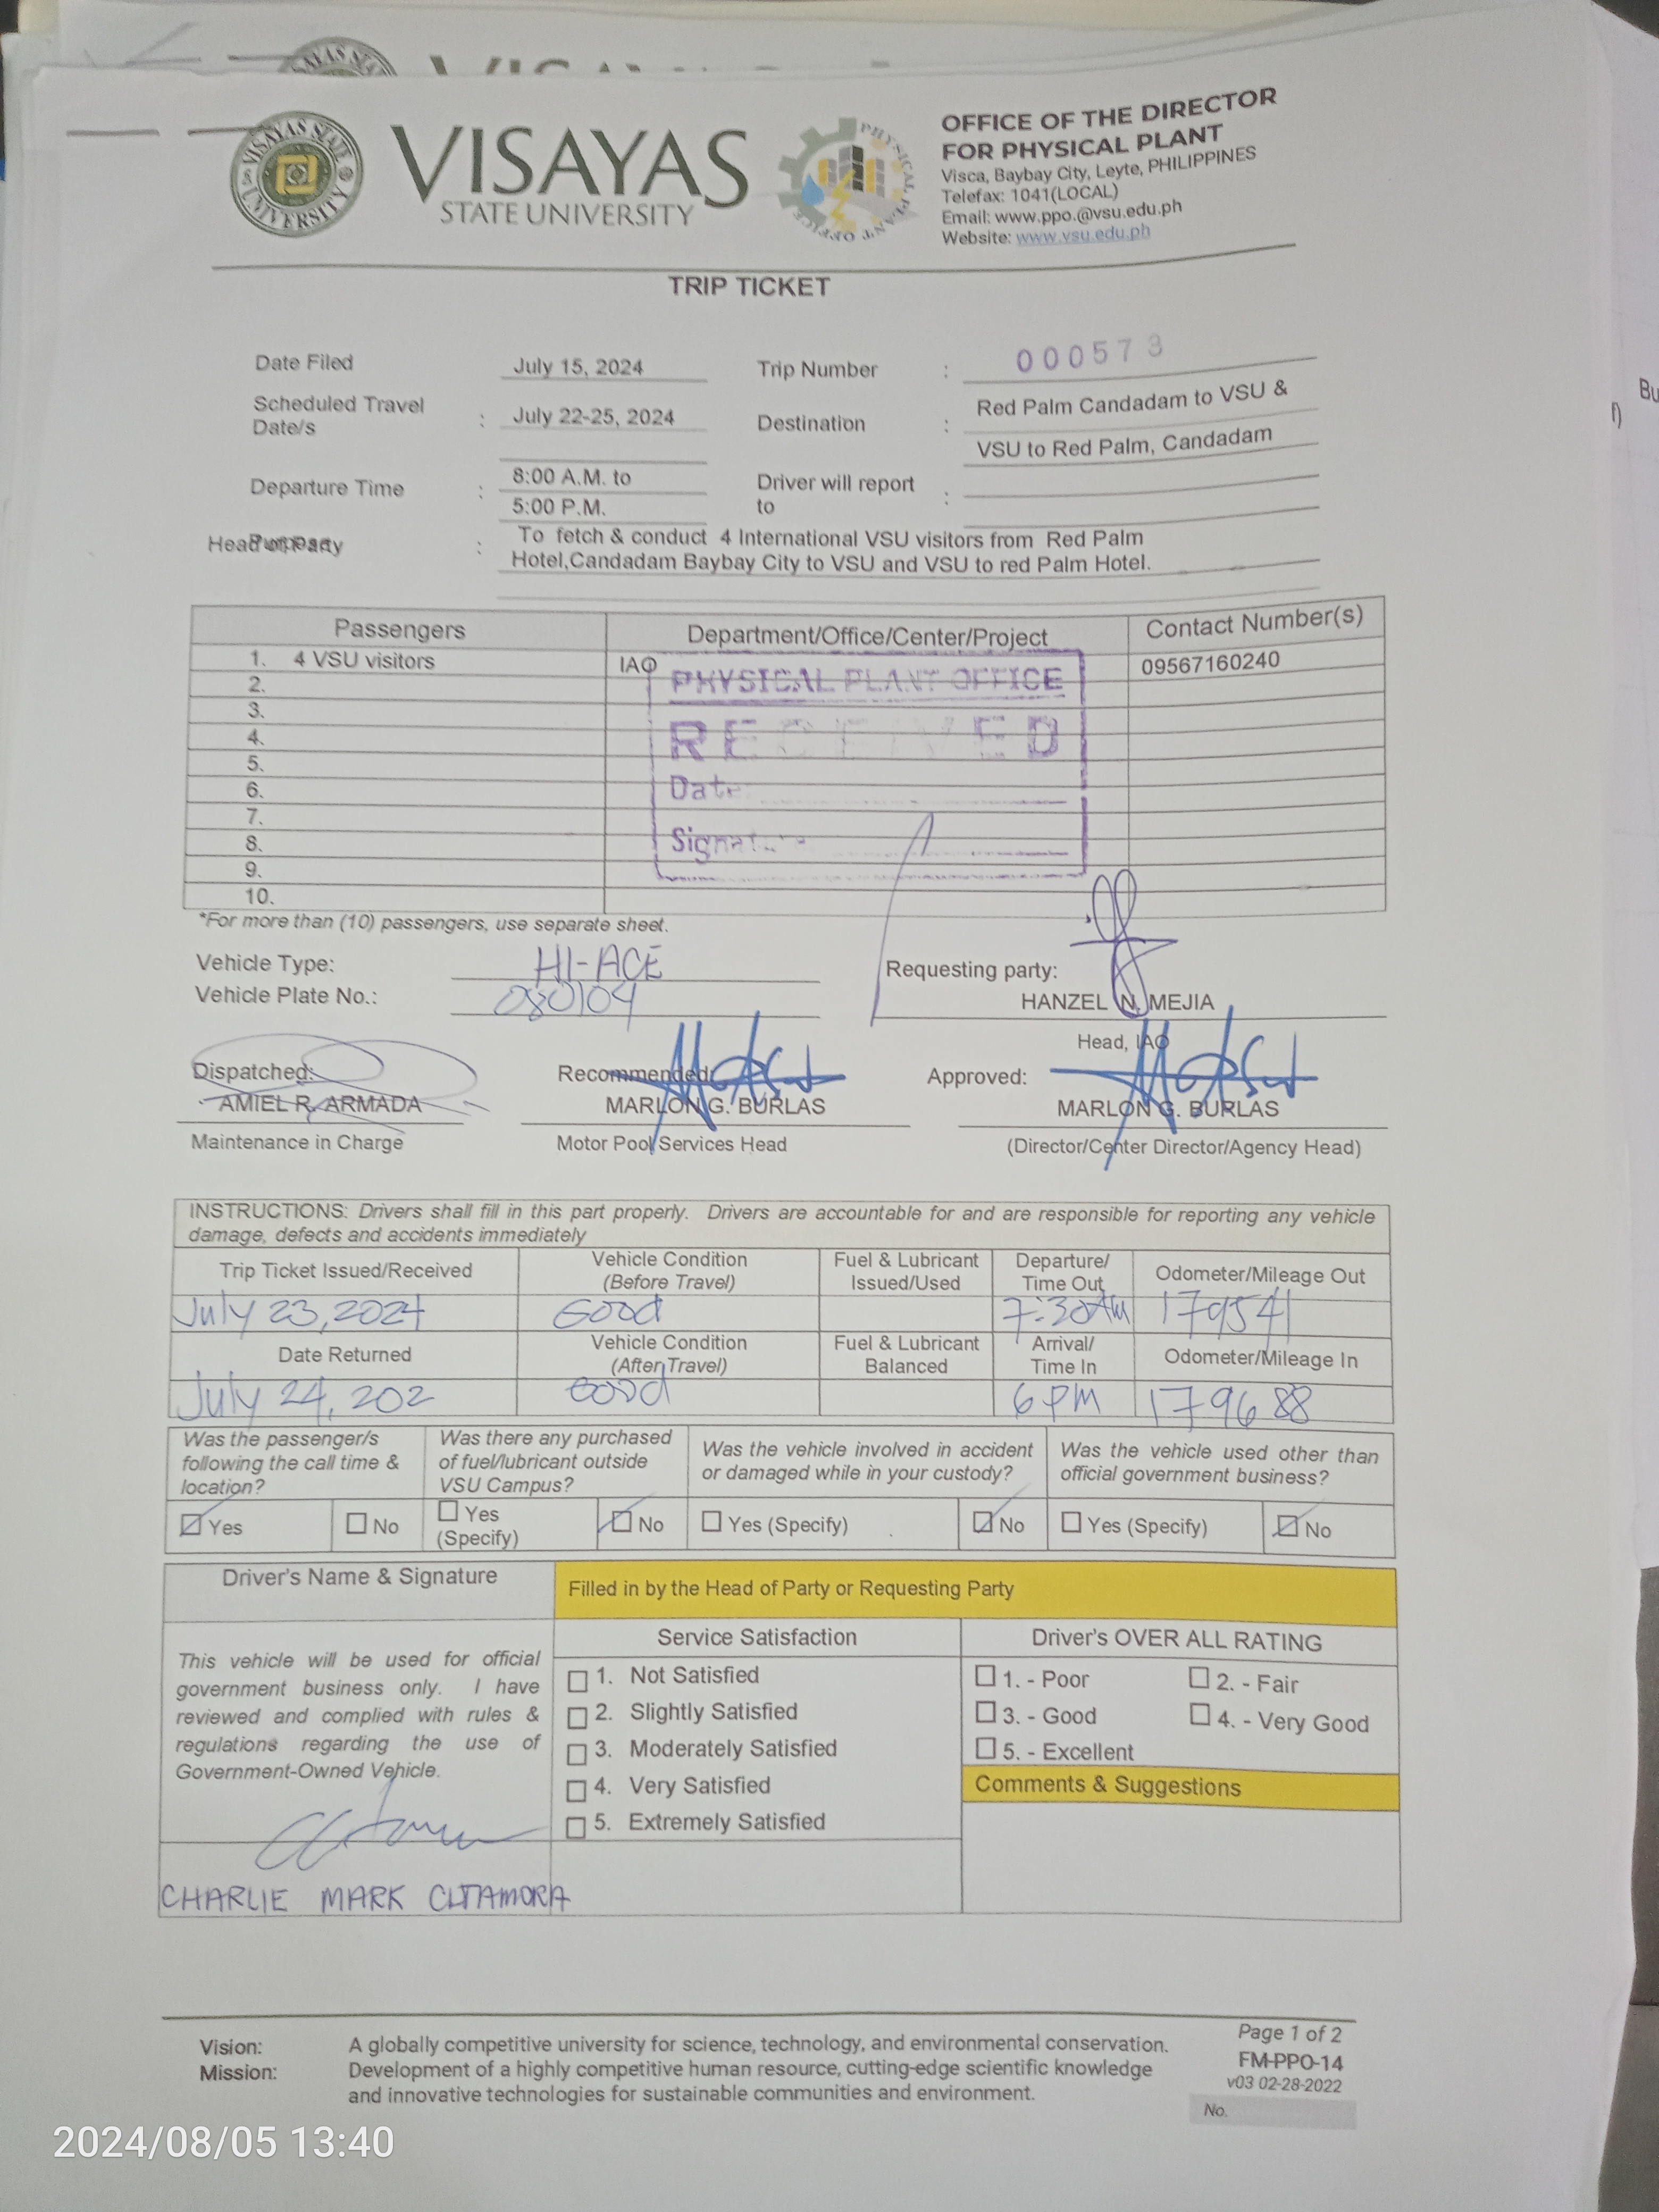 VISAYAS STATE UNIVERSITY
VISAYAS
STATE UNIVERSITY
PHYSICAL PLANT OFFICE
OFFICE OF THE DIRECTOR
FOR PHYSICAL PLANT
Visca, Baybay City, Leyte, PHILIPPINES
Telefax: 1041(LOCAL)
Email: www.ppo.@vsu.edu.ph
Website: www.vsu.edu.ph
TRIP TICKET
Date Filed July 15, 2024 Trip Number : 000573
Scheduled Travel Date/s : July 22-25, 2024 Destination : Red Palm Candadam to VSU &
VSU to Red Palm, Candadam
Departure Time : 8:00 A.M. to Driver will report to :
5:00 P.M.
Head of Party : To fetch & conduct 4 International VSU visitors from Red Palm
Hotel,Candadam Baybay City to VSU and VSU to red Palm Hotel.
Passengers Department/Office/Center/Project Contact Number(s)
1. 4 VSU visitors IAO 09567160240
2.
3.
4.
5.
6.
7.
8.
9.
10.
PHYSICAL PLANT OFFICE
RECEIVED
Date
Signature
*For more than (10) passengers, use separate sheet.
Vehicle Type: HI-ACE
Vehicle Plate No.: 080104
Requesting party:
HANZEL N. MEJIA
Head, IAO
Dispatched: Recommended: Approved:
AMIEL R. ARMADA MARLON G. BURLAS MARLON G. BURLAS
Maintenance in Charge Motor Pool Services Head (Director/Center Director/Agency Head)
INSTRUCTIONS: Drivers shall fill in this part properly. Drivers are accountable for and are responsible for reporting any vehicle
damage, defects and accidents immediately
Trip Ticket Issued/Received Vehicle Condition (Before Travel) Fuel & Lubricant Issued/Used Departure/ Time Out Odometer/Mileage Out
July 23, 2024 Good 7:30AM 179541
Date Returned Vehicle Condition (After Travel) Fuel & Lubricant Balanced Arrival/ Time In Odometer/Mileage In
July 24, 202 Good 6PM 179688
Was the passenger/s following the call time & location? Was there any purchased of fuel/lubricant outside VSU Campus? Was the vehicle involved in accident or damaged while in your custody? Was the vehicle used other than official government business?
Yes No Yes (Specify) No Yes (Specify) No Yes (Specify) No
Driver's Name & Signature Filled in by the Head of Party or Requesting Party
This vehicle will be used for official
government business only. I have
reviewed and complied with rules &
regulations regarding the use of
Government-Owned Vehicle.
CHARLIE MARK
Service Satisfaction
1. Not Satisfied
2. Slightly Satisfied
3. Moderately Satisfied
4. Very Satisfied
5. Extremely Satisfied
Driver's OVER ALL RATING
1. - Poor 2. - Fair
3. - Good 4. - Very Good
5. - Excellent
Comments & Suggestions
Vision: A globally competitive university for science, technology, and environmental conservation.
Mission: Development of a highly competitive human resource, cutting-edge scientific knowledge
and innovative technologies for sustainable communities and environment.
Page 1 of 2
FM-PPO-14
v03 02-28-2022
No.
2024/08/05 13:40